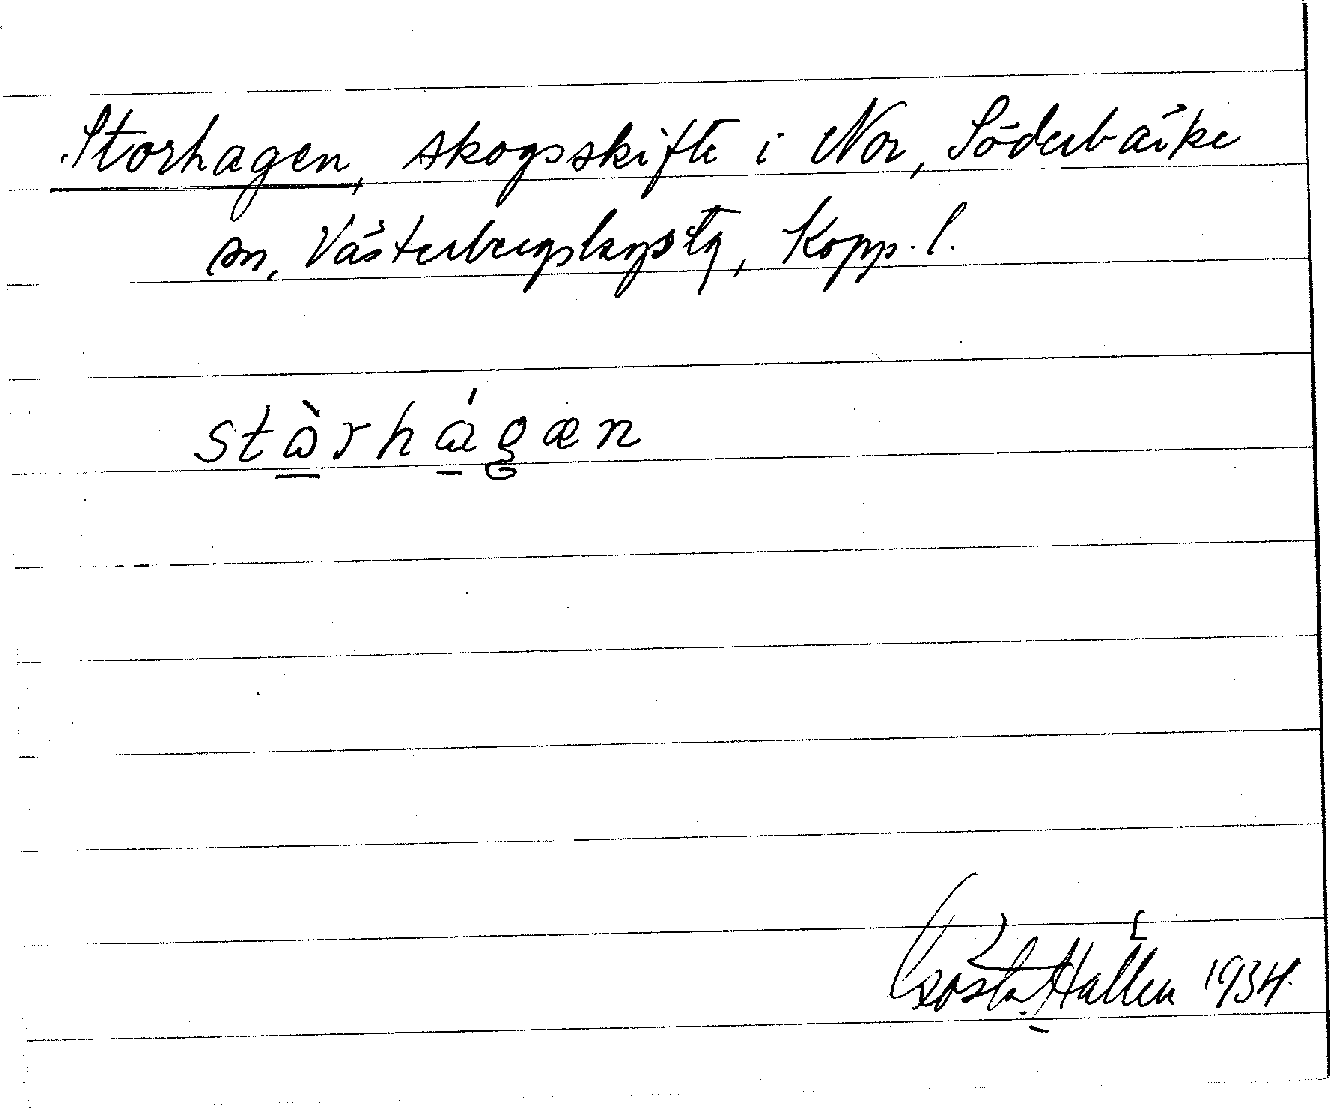 Storhagen, skogsskifte i Nor, Söderbärke
sn, Västerbergslags tg, Kopp. l.
stὼrhágæn
Gösta Hallén 1934.